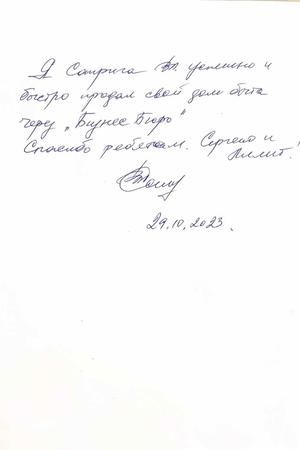 Я Саприга В.П. успешно и
быстро продал свой дом быта
через „Бизнес Бюро“
Спасибо ребятам. Сергею и
!
29.10.2023.